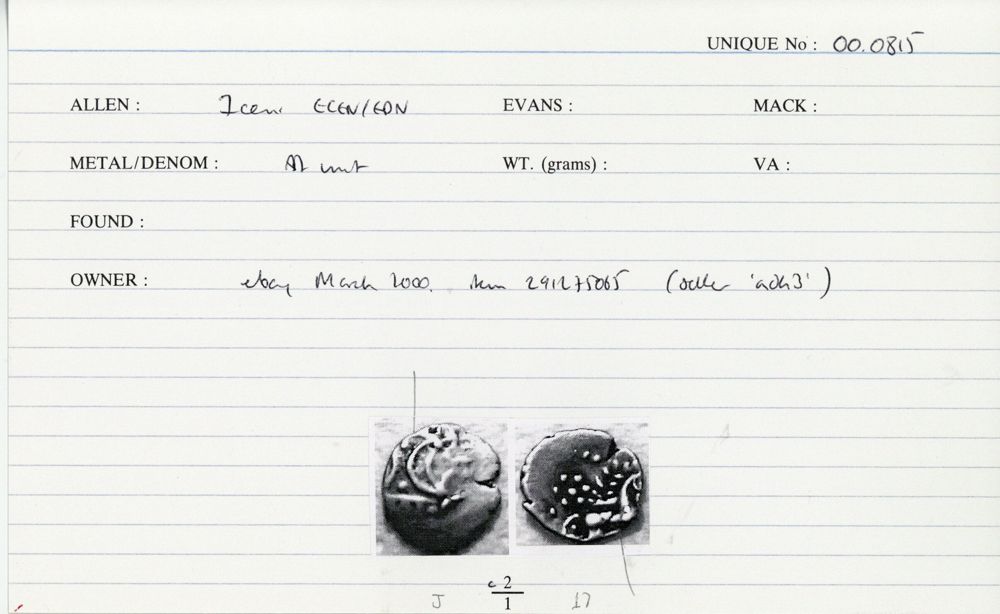 UNIQUE No : 00.0815
ALLEN : Iceni ECEN/EDN EVANS : MACK :
METAL/DENOM : AR unit WT. (grams) : VA :
FOUND :
OWNER : ebay March 2000. item 291275065 (seller 'adh3')
c 2
J 1 17